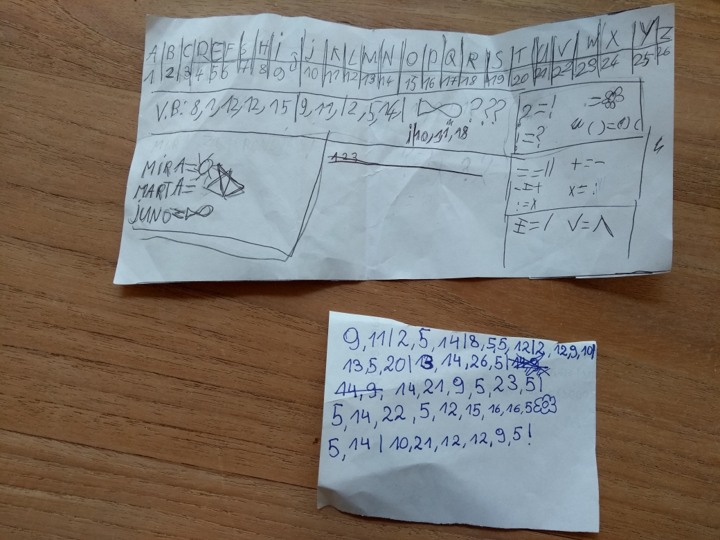 A B C D E F G H i j K L M N O P Q R S T U V W X Y Z
1 2 3 4 5 6 7 8 9 10 11 12 13 14 15 16 17 18 19 20 21 22 23 24 25 26
V.B: 8,1,12,12,15|9,11,|2,5,14| ???
j|10,11,18
MiRA=
MARTA=
JUNO=
123
?=! .=
!=? " ( ) = (
= = 11 + = -
- = + x = :
: = x
I = / V = Λ
9,11|2,5,14|8,5,5,12|2,12,9,10|
13,5,20|13,14,26,5|
14,9, 14,21,9,5,23,5|
5,14,22,5,12,15,16,16,5
5,14|10,21,12,12,9,5!